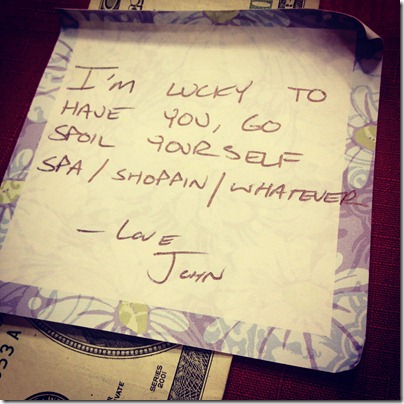 I'M LUCKY TO
HAVE YOU, GO
SPOIL YOURSELF
SPA/SHOPPIN/WHATEVER
- LOVE
JOHN
SERIES
2001